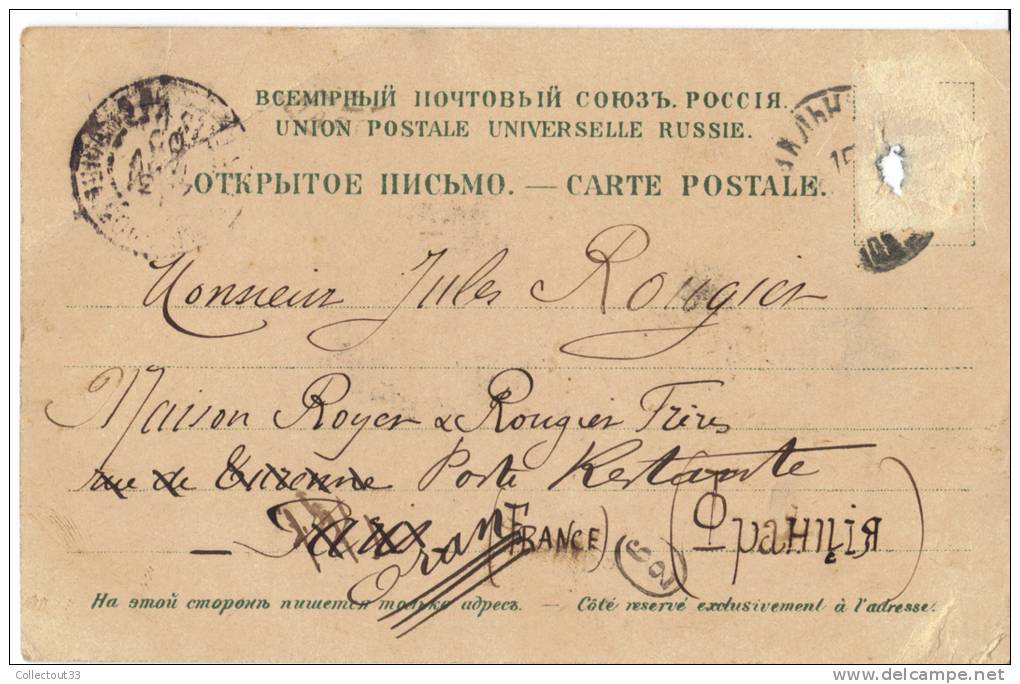 ВСЕМІРНЫЙ ПОЧТОВЫЙ СОЮЗЪ. РОССІЯ.
UNION POSTALE UNIVERSELLE RUSSIE.
ОТКРЫТОЕ ПИСЬМО. — CARTE POSTALE.
Monsieur Jules Rougier
Maison Royer & Rougier Frères
rue de Poste Restante
Paris Oran (FRANCE) (Франція)
609
На этой сторонѣ пишется только адресъ. — Côté reservé exclusivement à l'adresse.
Collectout33
www.delcampe.net